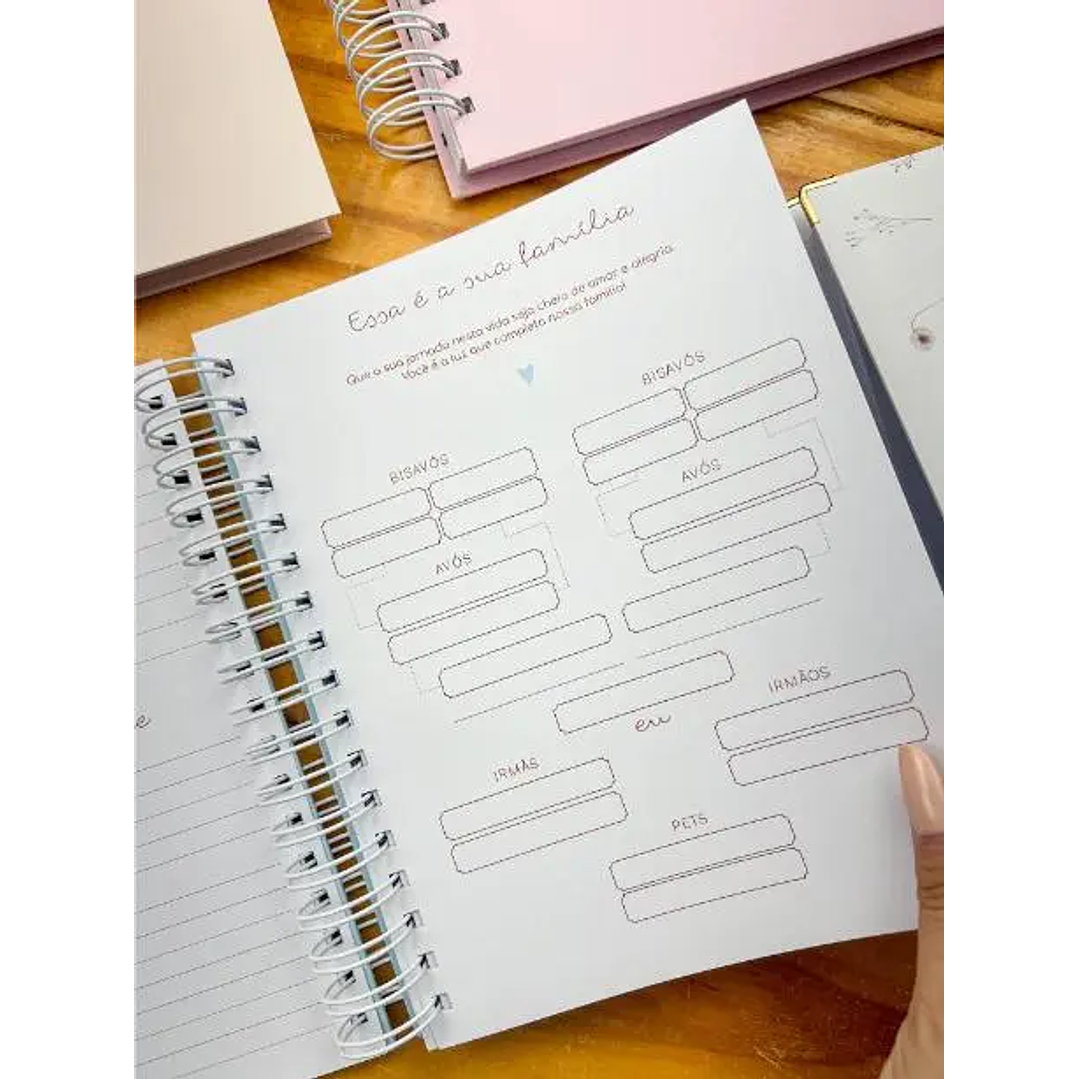 Essa é a sua família
Que a sua jornada nesta vida seja cheia de amor e alegria.
Você é a luz que completa nossa família!
BISAVÓS
BISAVÓS
AVÓS
AVÓS
eu
IRMÃOS
IRMÃS
PETS
e